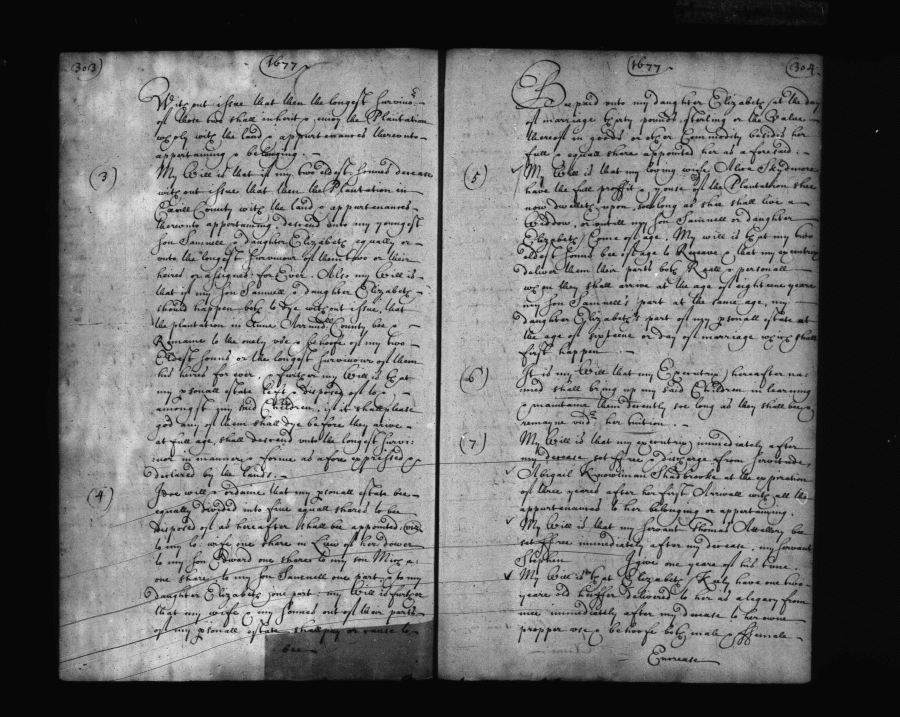 303
1677
Without issue that then the longest Survivor
of those two shall inherit & enjoy the Plantation
wholy with the land & appurtenances thereunto
appertaining & belonging.
(3) My Will is that if my two eldest sonnes decease
without issue that then the Plantation in
County with the land & appurtenances
thereunto appertaining, descend unto my youngest
son Samuell & daughter Elizabeth equally or
unto the longest Survivour of them two or their
heires or assignes for Ever. Also my Will is
that if my son Samuell & daughter Elizabeth
should happen both to dye without issue, that
the plantation in Anne Arrundll County bee &
Remaine to the onely use & behoofe of my two
Eldest sonns or the longest Survivour of them
his heires for ever & further my Will is that
my psonall estate left & disposed of to &
amongst my said Children, if it shall please
god any of them shall dye before they arive
at full age, shall descend unto the longest Survi:
vor in manner & forme as afore expressed &
declared by the lands.
(4) I doe will & ordaine that my psonall estate bee
equally devided into five equall shares to bee
disposed of as hereafter shall bee appointed, viz
to my lo: wife one share in Liew of her dower
to my son Edward one share to my son
one share, to my son Samuell one part, & to my
daughter Elizabeth one part, my Will is further
that my wife & my sonnes out of their parts
of my psonall estate shall pay or cause to
bee
1677
304
Bee paid unto my daughter Elizabeth at the day
of marriage thirty pounds starling or the Value
thereof in goods or other Commodity besides her
full & equall share appointed her as aforesaid.
(5) My Will is that my loving wife Alice Skydmore
have the full proffit & use of the Plantation shee
now dwelleth upon, soe long as shee shall live a
Widdow, or untill my son Samuell or daughter
Elizabeth Come of age, My will is that my two
eldest sonns bee of age to Receave & that my executrix
deliver them their parts both Reall & personall
when they shall arrive at the age of eighteene yeares
my son Samuell's part at the same age, my
daughter Elizabeth's part of my psonall estate at
the age of sixteene or day of marriage which shall
first happen.
(6) It is my Will that my Executrix hereafter na:
med shall bring up my said Children in learning
& maintaine them decently soe long as they shall bee &
remayne under her tuition.
(7) My Will is that my executrix immediately after
my decease set free & discharge from servitude,
Abigail at the expiration
of three yeares after her first Arrivall with all the
appurtenances to her belonging or appertaining.
My Will is that my servant Thomas bee
set ffree immediately after my decease, my servant
Stephen I give one yeare of his time.
My Will is that Elizabeth have one two
yeare old heiffer delivered to her as a legacy from
mee immediately after my decease to her owne
propper use & behoofe both male & ffemale
Encrease